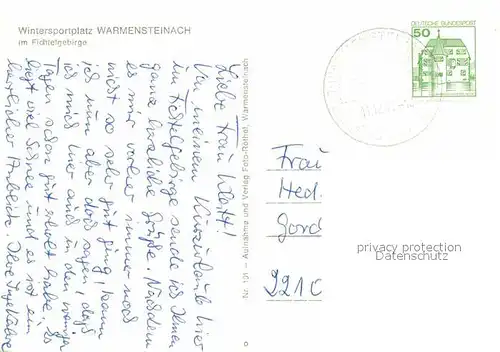 Wintersportplatz WARMENSTEINACH
im Fichtelgebirge
Liebe Frau Klatt!
Von meinem Kurzurlaub hier
im Fichtelgebirge sende ich Ihnen
ganz herzliche Grüße. Nachdem
es mir vorher immer noch
nicht so sehr gut ging, kann
ich nun aber doch sagen, daß
ich mich hier auch in den wenigen
Tagen schon gut erholt habe. Es
liegt viel Schnee und es ist ein
herrlicher Anblick. Ihre
Nr. 101 – Aufnahme und Verlag Foto-Rothel, Warmensteinach
DEUTSCHE BUNDESPOST
50
Frau
Hed.
Gord
221C
privacy protection
Datenschutz